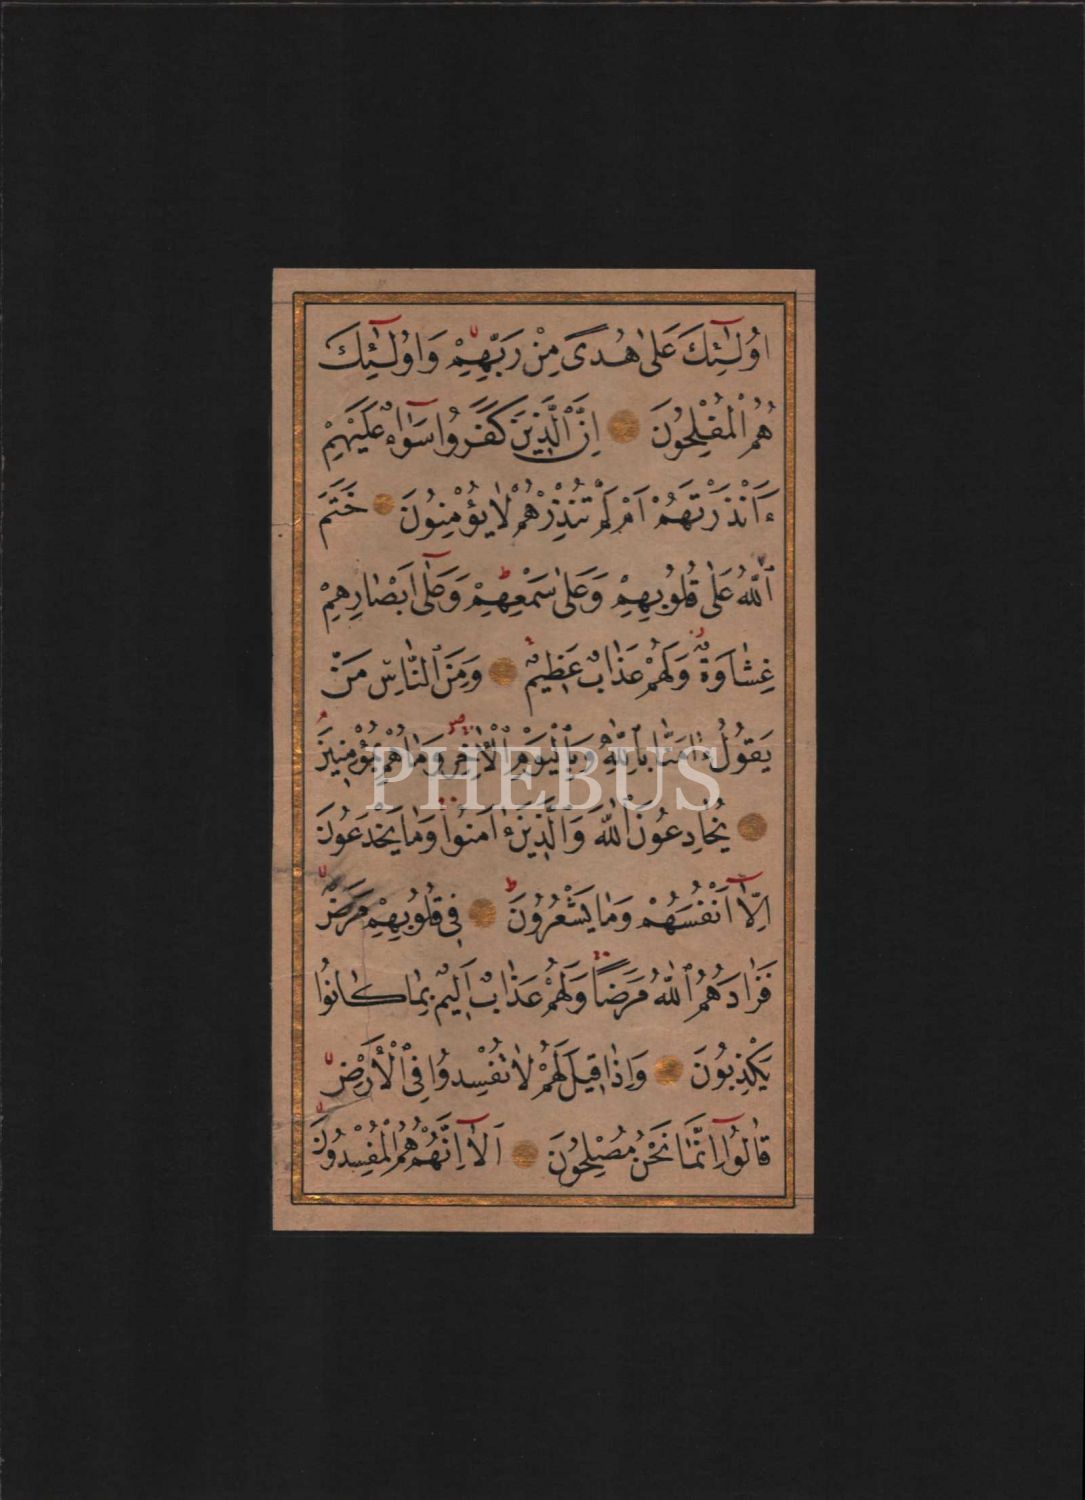 اُولٰٓئِكَ عَلٰى هُدًى مِنْ رَبِّهِمْ وَاُولٰٓئِكَ
هُمُ الْمُفْلِحُونَ اِنَّ الَّذِينَ كَفَرُوا سَوَٓاءٌ عَلَيْهِمْ
ءَاَنْذَرْتَهُمْ اَمْ لَمْ تُنْذِرْهُمْ لَا يُؤْمِنُونَ خَتَمَ
اللّٰهُ عَلٰى قُلُوبِهِمْ وَعَلٰى سَمْعِهِمْ وَعَلٰٓى اَبْصَارِهِمْ
غِشَاوَةٌ وَلَهُمْ عَذَابٌ عَظِيمٌ وَمِنَ النَّاسِ مَنْ
يَقُولُ ءَامَنَّا بِاللّٰهِ وَبِالْيَوْمِ الْاٰخِرِ وَمَا هُمْ بِمُؤْمِنِينَ
PHEBUS
يُخَادِعُونَ اللّٰهَ وَالَّذِينَ ءَامَنُوا وَمَا يَخْدَعُونَ
اِلَّٓا اَنْفُسَهُمْ وَمَا يَشْعُرُونَ فِى قُلُوبِهِمْ مَرَضٌ
فَزَادَهُمُ اللّٰهُ مَرَضًا وَلَهُمْ عَذَابٌ اَلِيمٌ بِمَا كَانُوا
يَكْذِبُونَ وَاِذَا قِيلَ لَهُمْ لَا تُفْسِدُوا فِى الْاَرْضِ
قَالُٓوا اِنَّمَا نَحْنُ مُصْلِحُونَ اَلَٓا اِنَّهُمْ هُمُ الْمُفْسِدُونَ